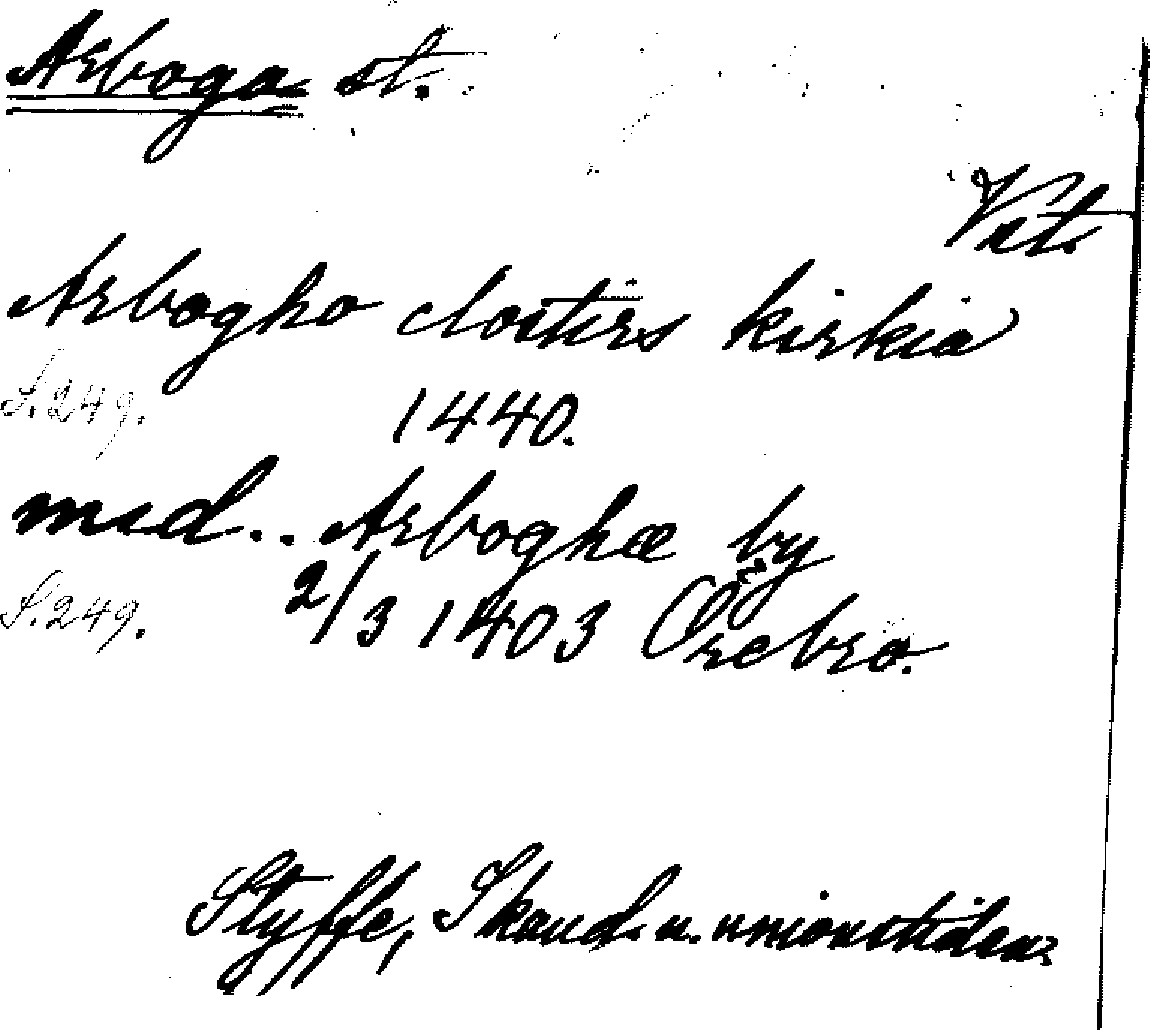 Arboga st.
Vstl.
Arbogho closters kirkia
S. 249. 1440.
med.. Arboghæ by
S. 249. 2/3 1403 Örebro.
Styffe, Skand. u. unionstiden